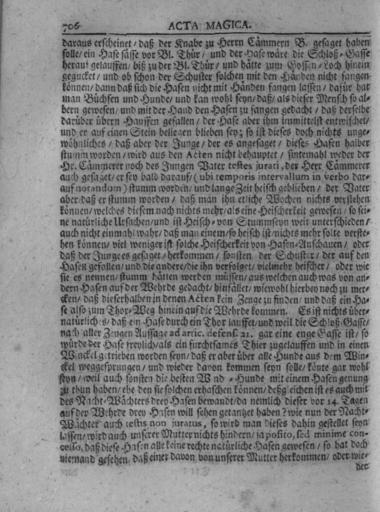 706 ACTA MAGICA.
daraus erscheinet / daß der Knabe zu Herrn Cämmern B. gesaget haben
solle / ein Hase sässe vor Bl. Thür / und der Hase wäre die Schloß-Gasse
herauf gelauffen / biß zu der Bl. Thür / und hätte zum Gossen-Loch hinein
gegucket / und ob schon der Schuster solchen mit den Händen nicht fangen
können / dann daß sich die Hasen nicht mit Händen fangen lassen / dafür hat
man Büchsen und Hunde / und kan wohl seyn / daß / als dieser Mensch so al-
bern gewesen / und mit der Hand den Hasen zu fangen gedacht / daß derselbe
darüber übern Hauffen gefallen / der Hase aber ihm immittelst entwischet /
und er auf einen Stein beliegen blieben sey; so ist dieses doch nichts unge-
wöhnliches / daß aber der Junge / der es angesaget / dieses Hasen halber
stumm worden / wird aus den Acten nicht behauptet / sintemahl weder der
Hr. Cämmerer noch des Jungen Vater testes jurati, der Herr Cämmerer
auch gesaget / er sey bald darauf / (ubi temporis intervallum in verbo dar-
auf notandum) stumm worden / und lange Zeit heisch geblieben / der Vater
aber / daß er stumm worden / daß man ihn etliche Wochen nichts verstehen
können / welches diesem nach nichts mehr / als eine Heischerkeit gewesen / so sei-
ne natürliche Ursachen / und ist Heisch- von Stummseyn weit unterschieden /
auch nicht einmahl wahr / daß man einem / so heisch ist / nichts mehr solte verste-
hen können / viel weniger ist solche Heischerkeit von Hasen-Anschauen / oder
daß der Junge es gesaget / herkommen / sonsten der Schuster / der auf den
Hasen gefallen / und die andere / die ihn verfolget / vielmehr heischer / oder wie
sie es nennen / stumm hätten werden müssen / aus welchen auch was von an-
dern Hasen auf der Wehrde gedacht / hinfället / wiewohl hierbey noch zu mer-
cken / daß dieserhalben in denen Acten kein Zeuge zu finden / und daß ein Ha-
se also zum Thor-Weg hinein auf die Wehrde kommen. Es ist nichts über-
natürliches / daß ein Hase durch ein Thor läuffet / und weil die Schloß-Gasse /
nach aller Zeugen Aussage ad artic. defens. 21. gar eine enge Gasse ist / so
würde der Hase freylich / als ein furchtsames Thier zugelauffen und in einen
Winckel getrieben worden seyn / daß er aber über alle Hunde aus dem Win-
ckel weggesprungen / und wieder davon kommen seyn solle / könte gar wohl
seyn / weil auch sonsten die besten Wind-Hunde mit einem Hasen genung
zu thun haben / ehe den sie solchen erhaschen können / deßgleichen ist es auch mit
des Nacht-Wächters drey Hasen bewandt / da nemlich dieser vor 14. Tagen
auf der Wehrde drey Hasen will sehen getantzet haben / wie nun der Nacht-
Wächter auch testis non juratus, so wird man dieses dahin gestellet seyn
lassen / wird auch unserer Mutter nichts hindern / ja posito, sed minime con-
cesso, daß diese Hasen alle keine rechte natürliche Hasen gewesen / so hat doch
niemand gesehen, daß einer davon von unserer Mutter herkommen / oder wie-
der